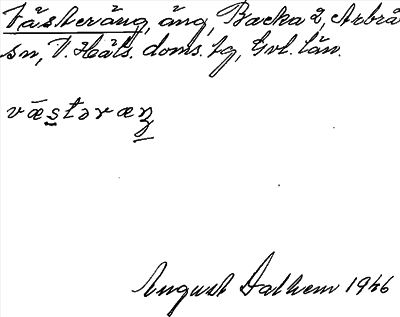 Västeräng, äng, Backa 2, Arbrå
sn, V. Häls. doms. fg, Gvl. län.
væ̅stəræŋ
August Dalhem 1946